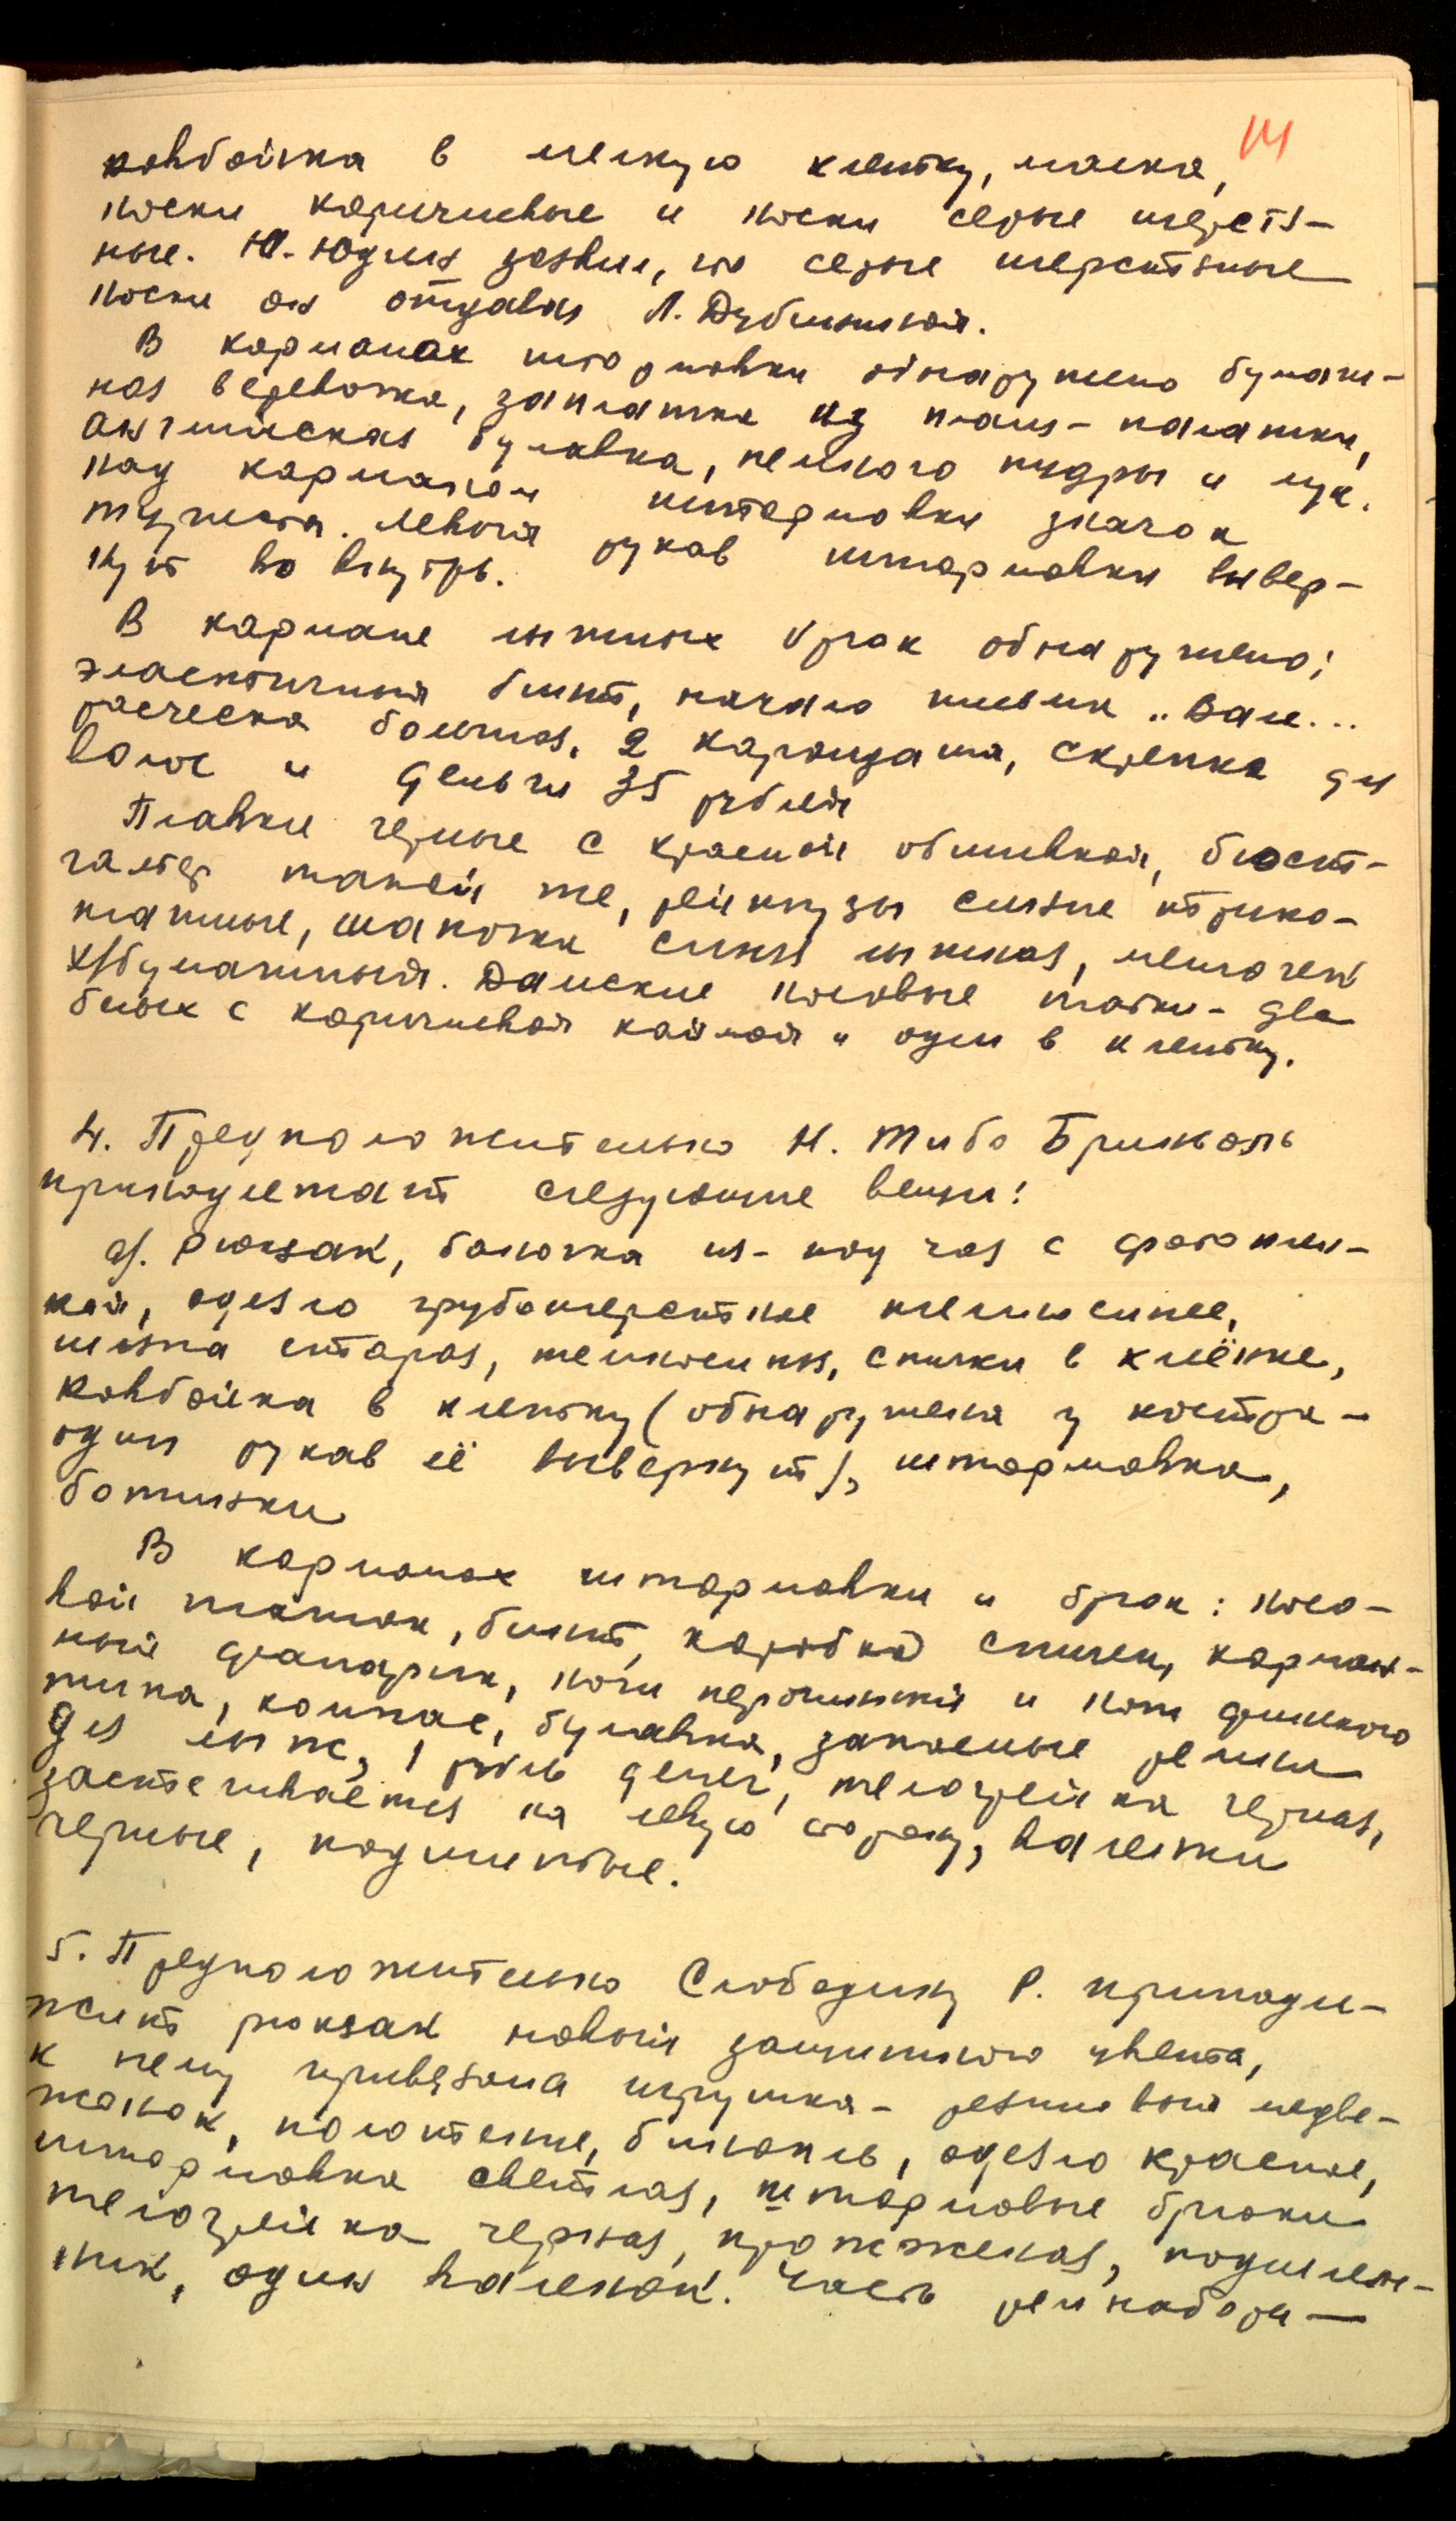 14
ковбойка в мелкую клетку, маска,
носки коричневые и носки серые шерстя-
ные. Ю. Юдин заявил, что серые шерстяные
носки он отдавал Л. Дубининой.
В карманах штормовки обнаружено бумаж-
ная веревочка, заплатка из плащ-палатки,
английская булавка, немного пудры и лук.
над карманом штормовки значок
туриста. Левый рукав штормовки вывер-
нут во внутрь.
В кармане лыжных брюк обнаружено:
эластичный бинт, начало письма „Вале...
расческа большая, 2 карандаша, скрепка для
волос и деньги 35 рублей
Плавки черные с красной обшивкой, бюст-
галтер такой же, рейтузы синие трико-
тажные, шапочка синяя лыжная, мешочек
х/бумажный. Дамские носовые платки - два
белых с коричневой каймой и один в клетку.
4. Предположительно Н. Тибо Бриньоль
принадлежат следующие вещи:
а). рюкзак, баночка из-под чая с фотоплен-
кой, одеяло грубошерстное темносинее,
шляпа старая, темносиняя, спички в клеёнке,
ковбойка в клетку (обнаружена у костра -
один рукав её вывернут), штормовка,
ботинки
В карманах штормовки и брюк: носо-
вой платок, бинт, коробка спичек, карман-
ный фонарик, нож перочинный и нож финского
типа, компас, булавка, запасные ремни
для лыж, 1 рубль денег, телогрейка черная,
застегивается на левую сторону, валенки
черные, подшитые.
5. Предположительно Слободину Р. принадле-
жит рюкзак новый защитного цвета,
к нему привязана игрушка - резиновый медве-
жонок, полотенце, бинокль, одеяло красное,
штормовка светлая, штормовые брюки
телогрейка черная, прожженая, подшлем-
ник, один валенок. Часть ремнабора -